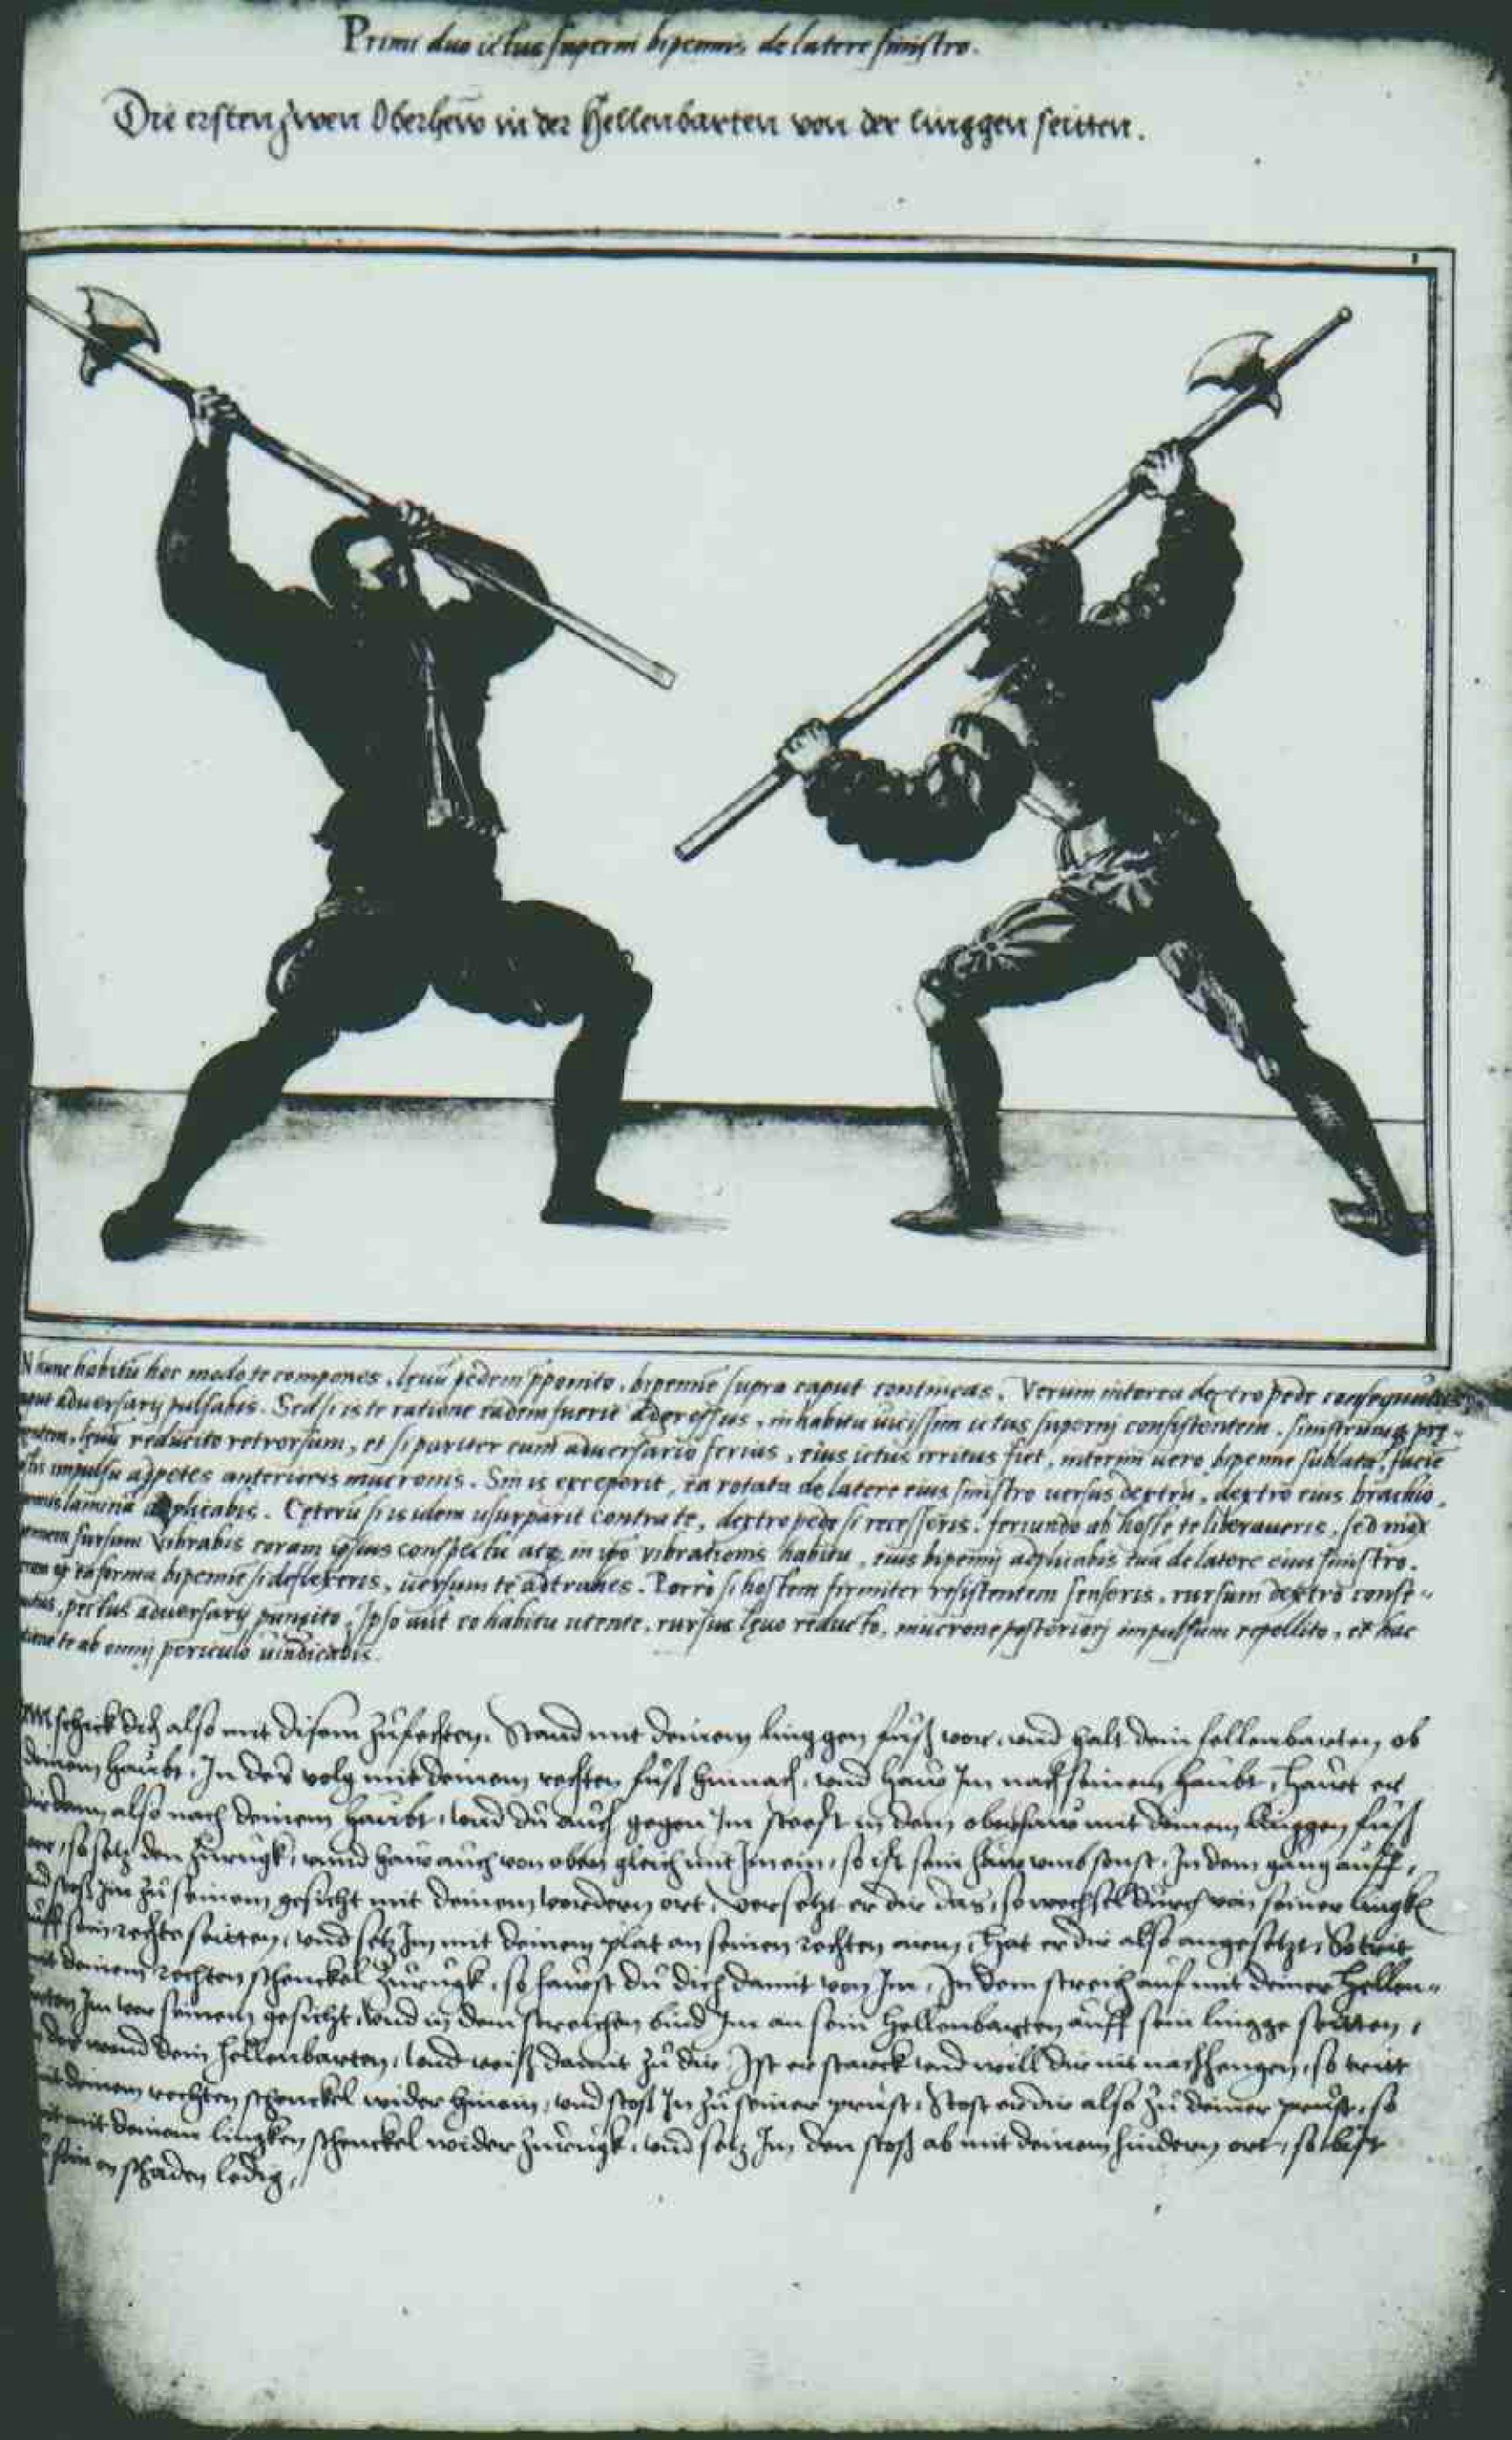 Primi duo ictus superni bipennis, de latere sinistro.
Die ersten zwen Oberhew in der Hellenbarten von der linggen seitten.
1
N hunc habitũ hoc modo te compones, leuũ pedem ꝓponito, bipennẽ supra caput contineas. Verum interea dextro pede consequutus
adversarij pulsabis. Sed si is te ratione eadem fuerit adgressus, in habitu vicissim ictus superni consistentem, sinistrumq; prę-
leuũ reducito retrorsum, et si pariter cum adversario ferias, eius ictus irritus fiet, interim vero bipenne sublata, faciẽ
impulsu appetes anterioris mucronis. Sin is exceperit, ea rotata de latere eius sinistro versus dextrũ, dextro eius brachio,
laminã applicabis. Cęterũ si is idem usurparit contra te, dextro pede si recesseris, feriundo ab hoste te liberaveris, sed mox
sursum vibrabis coram ipsius conspectu atq; in ipõ vibrationis habitu, eius bipenni applicabis tuã de latere eius sinistro.
ea forma bipennẽ si deflexeris, versum te adtrahes. Porro si hostem firmiter resistentem senseris, rursum dextro conse-
pectus adversarij pungito. Ipso aut eo habitu utente, rursus leuo reducto, mucrone posteriorj impulsum repellito, et hac
te ab omnj periculo vindicabis.
schick dich also mit disem zůfechten. Stand mit deinem linggen fůß vor, vnd halt dein hellenbarten ob
deinem haubt, In des volg mit deinem rechten fůß hinnach, vnd haw Im nach seinem haubt, hawt er
dir dann also nach deinem haubt, vnd du auch gegen Im steest in dem oberhaw mit deinem linggen fůß
vor, so setz den zurugk, vnnd haw auch von oben gleich mit Im ein, so ist sein haw vmb sonst, In dem gang auff,
vnd stoß Im zů seinem gesicht mit deinem vordern ort, versetzt er dir das, so wechsel durch von seiner lingkẽ
auff sein rechte seitten, vnd setz Im mit deinem plat an seinen rechten arm, Hat er dir also angesetzt, So trit
mit deinem rechten schenckel zurugk, so hawst du dich damit von Im, In dem streich auf mit deiner Hellen-
barten Im vor seinem gesicht, vnd in dem streichen bind Im an sein Hellenbarten auff sein lingge seitten,
wend dein hellenbarten, vnd reiß damit zů dir, Ist er starck vnd will dir nit nachhengen, so tritt
mit deinem rechten schenckel wider hinein, vnd stoß In zů seiner prust, Stost er dir also zů deiner prust, so
trit mit deinem lingken schenckel wider zurugk, vnd setz Im den stoß ab mit deinem hindern ort, so bist
seinen schaden ledig,